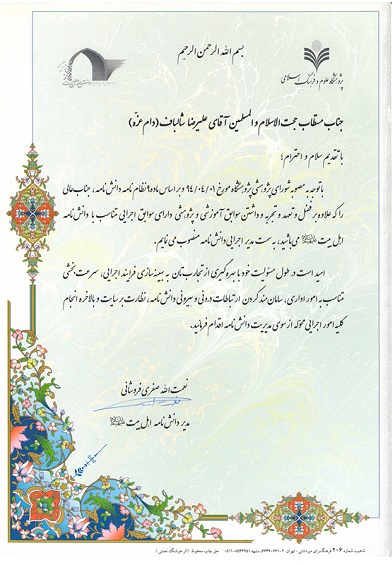 بسم الله الرحمن الرحیم
پژوهشگاه علوم و فرهنگ اسلامی
جناب مستطاب حجت الاسلام و المسلمین آقای علیرضا شالباف (دام عزه)
با تقدیم سلام و احترام؛
با توجه به مصوبه شورای پژوهشی پژوهشگاه مورخ ۹۴/۰۴/۰۱ و بر اساس ماده ۹ نظام نامه دانش نامه، جناب عالی
را که علاوه بر فضل و تعهد و تجربه و داشتن سوابق آموزشی و پژوهشی دارای سوابق اجرایی متناسب با دانش نامه
اهل بیت می باشید، به سمت مدیر اجرایی دانش نامه منصوب می نمایم.
امید است در طول مسئولیت خود با بهره گیری از تجارب تان به بهینه سازی فرایند اجرایی، سرعت بخشی
متناسب به امور اداری، سامان مند کردن ارتباطات درونی و بیرونی دانش نامه، نظارت بر سایت و بالاخره انجام
کلیه امور اجرایی محوله از سوی مدیریت دانش نامه اقدام فرمائید.
نعمت الله صفری فروشانی
مدیر دانش نامه اهل بیت
تذهیب شماره ۲۰۶ فرهنگسرای میردشتی - تهران
حق چاپ محفوظ